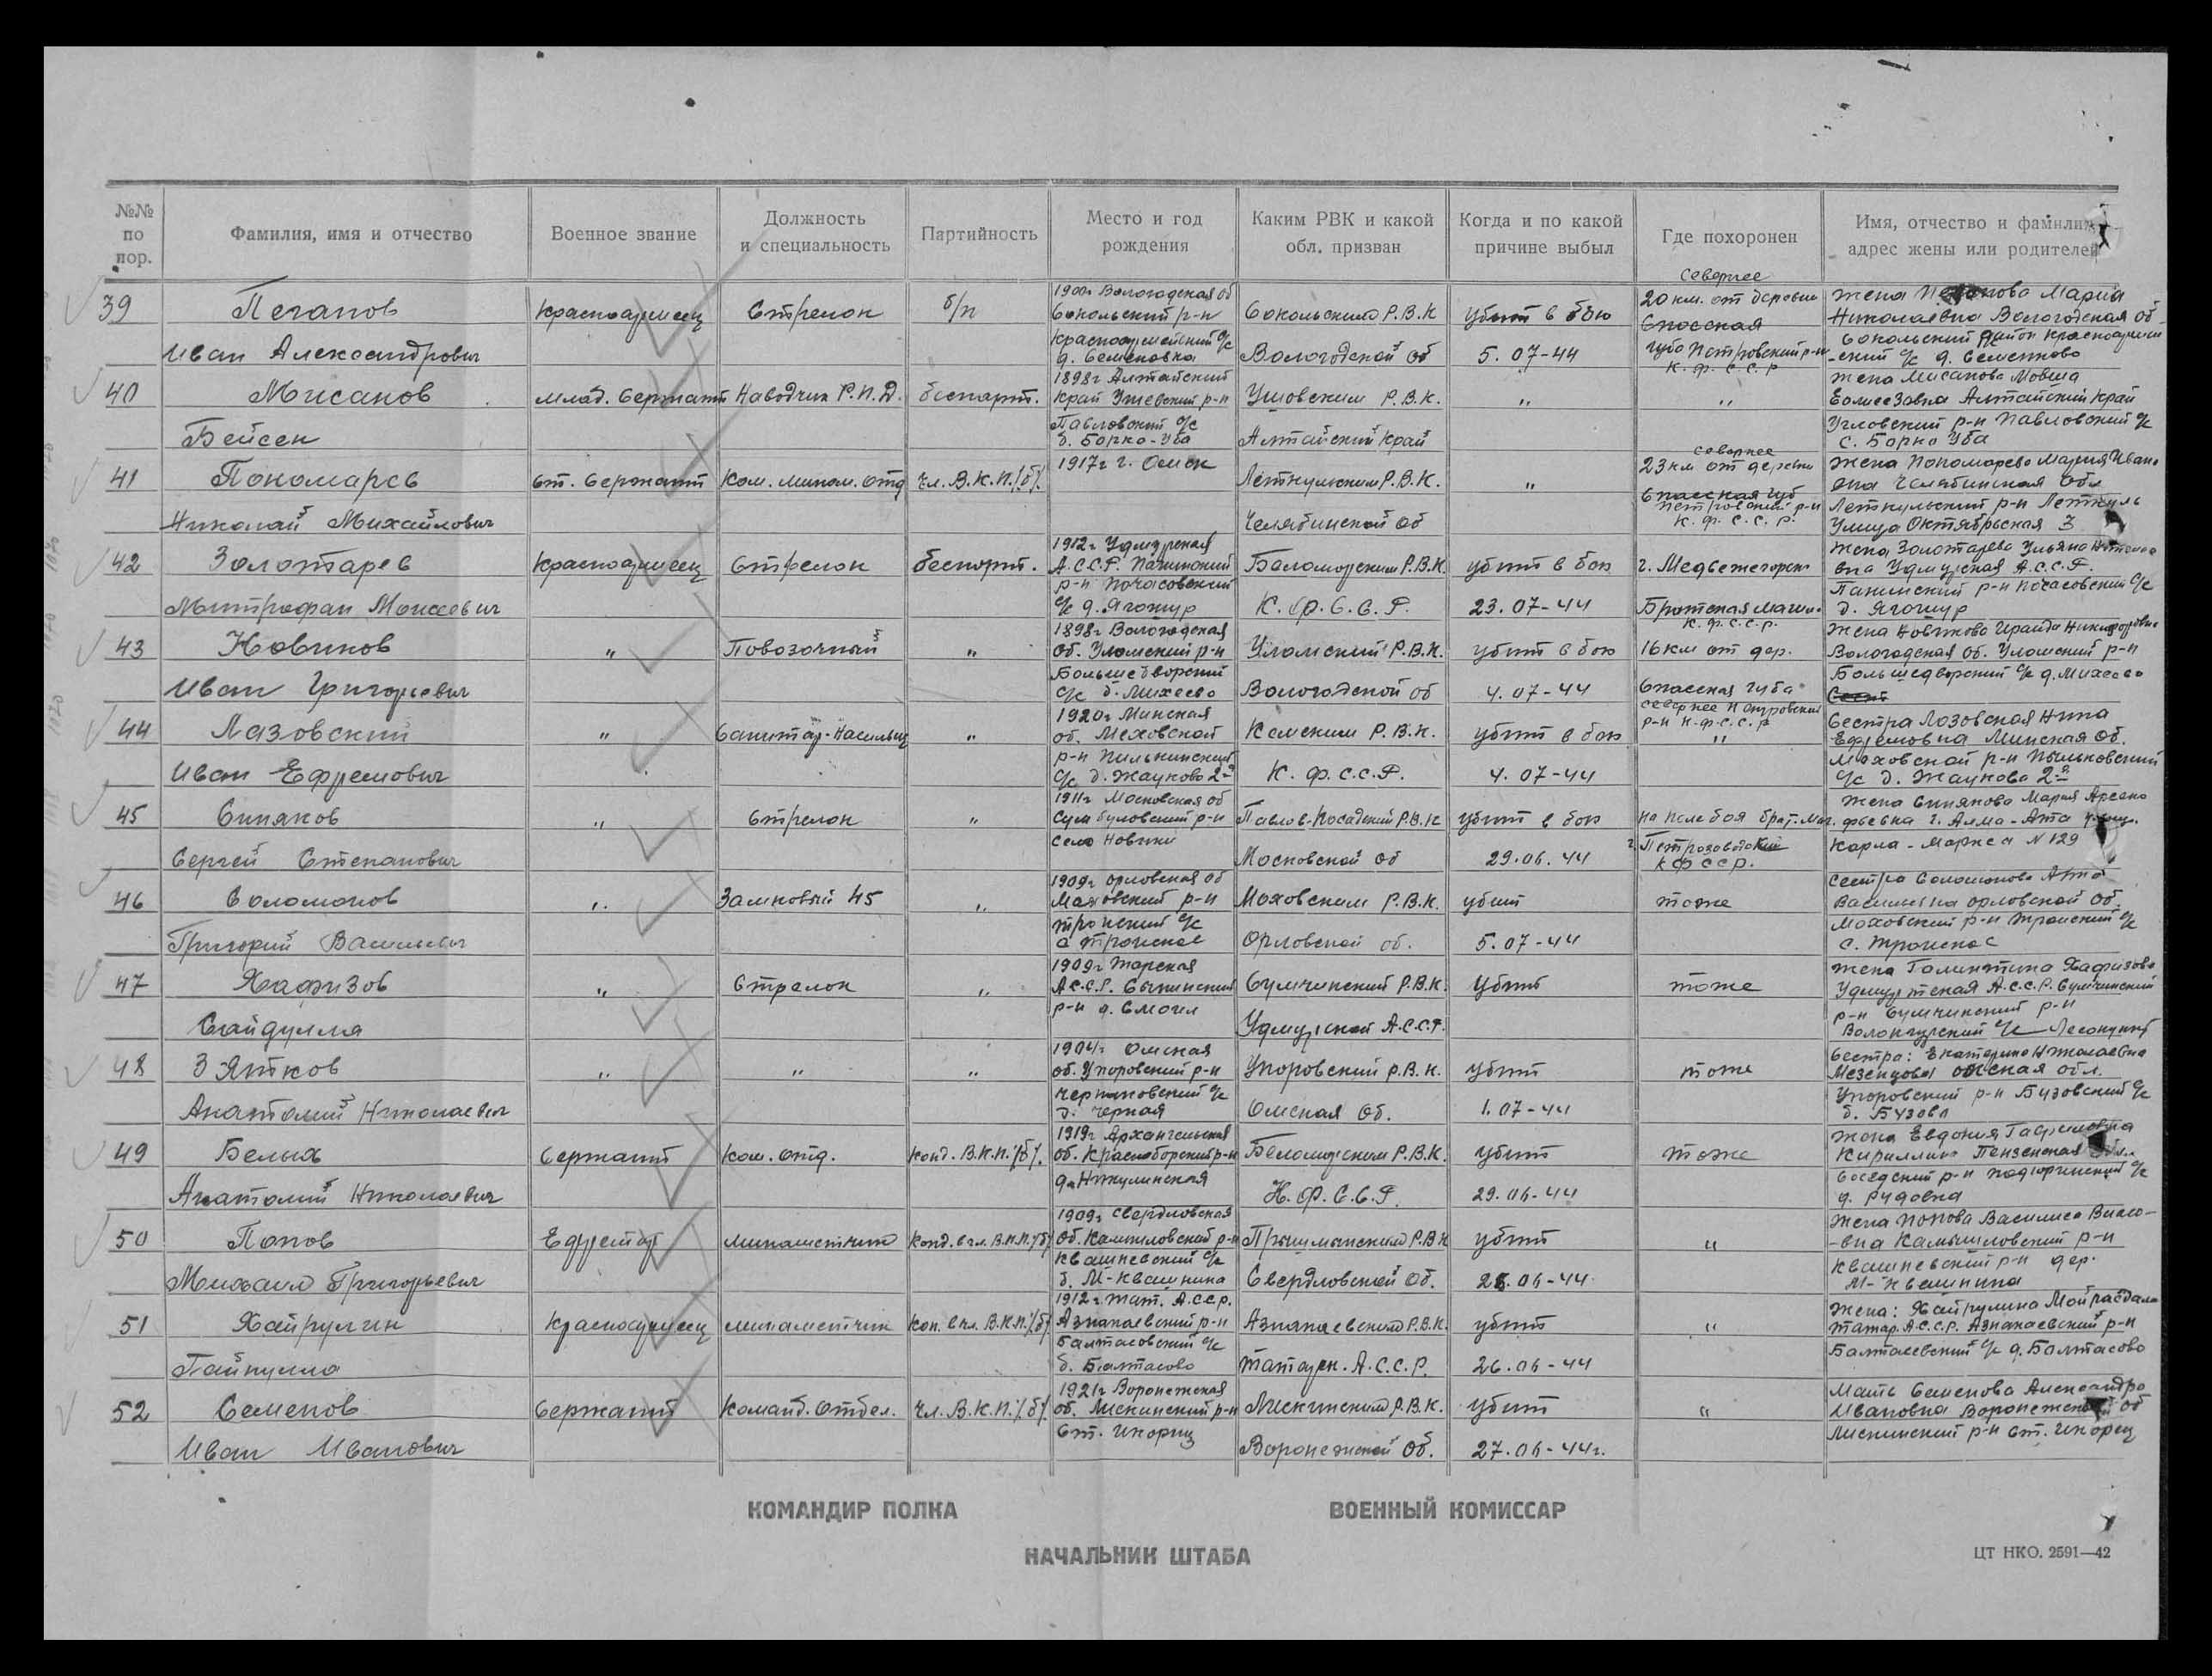 №№ по пор.
Фамилия, имя и отчество
Военное звание
Должность и специальность
Партийность
Место и год рождения
Каким РВК и какой обл. призван
Когда и по какой причине выбыл
Где похоронен
Имя, отчество и фамилия, адрес жены или родителей
39 Пеганов Иван Александрович
Красноармеец
Стрелок
б/п
1900г Вологодская об
Сокольский р-н
Красноармейский с/с
д. Семеновка
Сокольским Р.В.К
Вологодской об
убит в бою
5. 07-44
Севернее
20 км. от деревни
Спасская
губа Петровский р-н
К. ф. с. с. р
Жена Мария
Николаевна Вологодская об
Сокольский район Красноармей
-ский с/с д. Семенково
40 Мусаков Бейсен
млад. Сержант
Наводчик Р.П.Д.
беспарт.
1898г Алтайский
край р-н
Павловский с/с
Р.В.К.
Алтайский край
"
"
Жена
Алтайский край
Угловский р-н Павловский с/с
41 Пономарев Николай Михайлович
ст. Сержант
Ком. мином. отд
Чл. В.К.П./б/.
1917г г. Омск
Р.В.К.
Челябинской об
"
севернее
23 км от деревни
Спасская губ
Петровский р-н
К. ф. с. с. р.
Жена Пономарева Мария Ивано
вна Челябинская обл
Улица Октябрьская 3
42 Золотарев Митрофан Моисеевич
Красноармеец
Стрелок
беспорт.
1912г Удмурская
А.С.С.Р.
с/с д. Ягошур
Баломорским Р.В.К.
К. Ф. С. С. Р.
убит в бою
23. 07-44
г. Медвежегорск
Братская
К. ф. с. с. р.
Жена Золотарева Ульяна
вна Удмурская А.С.С.Р.
д. Ягошур
43 Новиков Иван Григорьевич
"
Повозочный
"
1898г Вологодская
об. Уломский р-н
Большедворский
с/с д. Михеево
Уломский Р.В.К.
Вологодской об
убит в бою
4. 07-44
16 км от дер.
Спасская губа
севернее Петровский
р-н К.ф.с.с.р
Жена Новикова Ираида Никифоровна
Вологодская об. Уломский р-н
Большедворский с/с д. Михеево
44 Лазовский Иван Ефремович
"
Санитар-Насильщ
"
1920г Минская
об. Меховской
р-н
с/с д. Жауково 2-я
Кемским Р.В.К.
К. ф. с.с.Р.
убит в бою
4. 07-44
"
Сестра Лозовская Нина
Ефремовна Минская об.
с/с д. Жауково 2-я
45 Синяков Сергей Степанович
"
Стрелок
"
1911г Московская об
р-н
село Новички
Павлов-Посадский Р.В.К
Московской об
убит в бою
29.06. 44
на поле боя брат. мог.
г. Петрозаводский
КФССР.
Жена Синякова Мария Арсено
фьевна г. Алма-Ата улиц.
Карла-Маркса N 129
46 Соломонов Григорий Васильевич
"
Замковый 45
"
1909г Орловская об
Моховский р-н
с/с
Моховским Р.В.К.
Орловской об.
убит
5. 07-44
тоже
Сестра Соломонова
Васильевна Орловской об.
Моховский р-н с/с
47 Хафизов Сайдулла
"
Стрелок
"
1909г
А.С.С.Р.
р-н д.
Р.В.К.
Удмурской А.С.С.Р.
Убит
тоже
Жена Хафизова
Удмуртская А.С.С.Р.
48 Зятков Анатолий Николаевич
"
"
"
1904г Омская
об. Упоровский р-н
с/с
д. Черная
Упоровский Р.В.К.
Омская об.
убит
1. 07-44
тоже
Сестра: Екатерина Николаевна
Мезенцова Омская обл.
Упоровский р-н Бузовский с/с
49 Белых Анатолий Николаевич
Сержант
Ком. отд.
Конд. В.К.П./б/.
1919г Архангельская
об. Красноборский р-н
д. Никулинская
Беломорским Р.В.К.
К. Ф. С.С.Р.
убит
29. 06-44
тоже
Жена Евдокия Гавриловна
Кириллина Пензенская обл.
50 Попов Михаил Григорьевич
Ефрейтор
минометчик
Конд. в чл. В.К.П./б/
1909г Свердловская
об. Камышловский р-н
Квашневский с/с
д. М-Квашнина
Пышминским Р.В.К
Свердловской об.
убит
28. 06-44
"
Жена Попова Василиса
-вна Камышловский р-н
Квашневский р-н дер.
М-Квашнина
51 Хайрулин Гайнулла
Красноармеец
минометчик
Кон. в чл. В.К.П./б/
1912г Тат. А.ССР.
Азнакаевский р-н
Балтасовский с/с
д. Балтасово
Азнакаевским Р.В.К.
Татарск. А.С.С.Р.
убит
26. 06-44
"
Жена: Хайрулина
Татар. А.С.С.Р. Азнакаевский р-н
Балтасевский с/с д. Балтасово
52 Семенов Иван Иванович
Сержант
Команд. Отдел.
Чл. В.К.П./б/.
1921г Воронежская
об. Лискинский р-н
Ст. Икорец
Лискинским Р.В.К.
Воронежской об.
убит
27. 06-44г.
"
Мать Семенова Александра
Ивановна Воронежской об
Лискинский р-н Ст. Икорец
КОМАНДИР ПОЛКА
ВОЕННЫЙ КОМИССАР
НАЧАЛЬНИК ШТАБА
ЦТ НКО. 2591—42